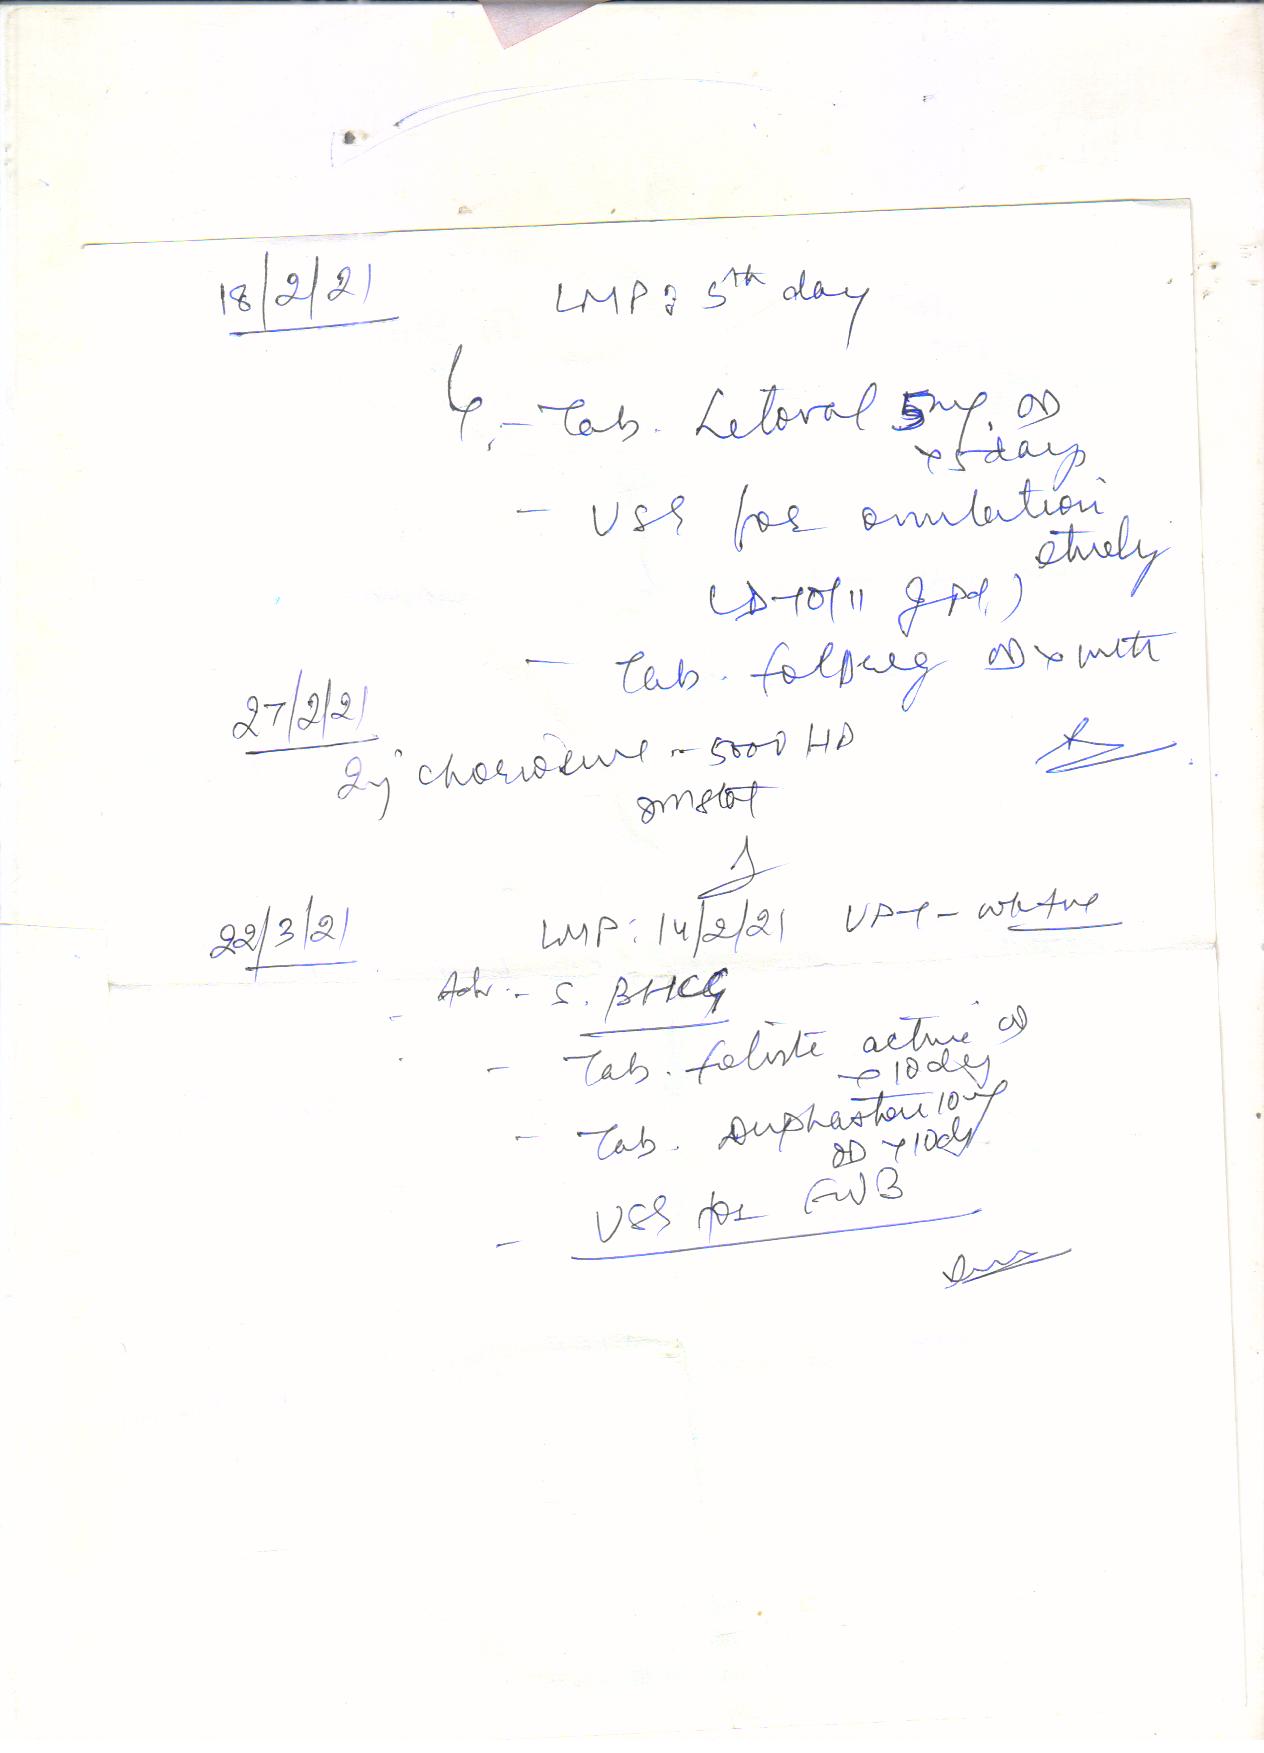 18/2/21 LMP: 5th day
- Tab. Letoval 5mg. OD
x 5 days
- USG for ovulation
study
(D-10/11 of pd.)
- Tab. OD x mth
27/2/21
Inj - 5000
stat
22/3/21 LMP: 14/2/21 UPT - wk +ve
Adv :- S. BHCG
- Tab. folite active OD
x 10 dys
- Tab. Duphaston 10mg
OD x 10dy
- USG for FWB